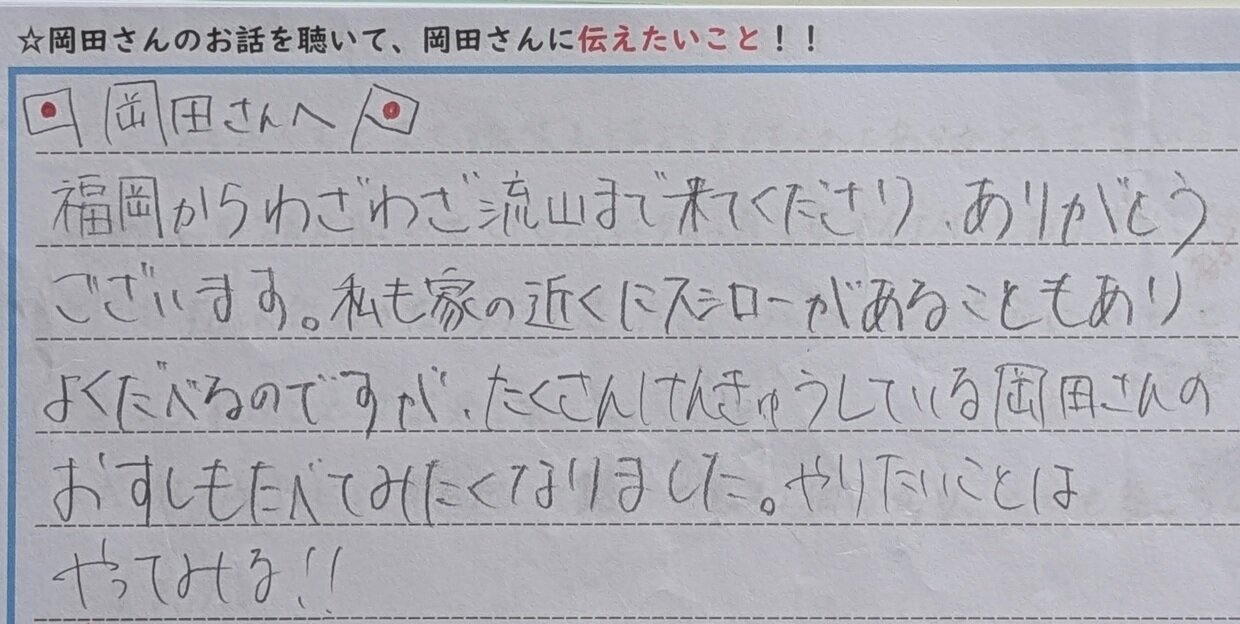 ☆岡田さんのお話を聴いて、岡田さんに伝えたいこと！！
岡田さんへ
福岡からわざわざ流山まで来てくださり、ありがとう
ございます。私も家の近くにスシローがあることもあり
よくたべるのですが、たくさんけんきゅうしている岡田さんの
おすしもたべてみたくなりました。やりたいことは
やってみる!!